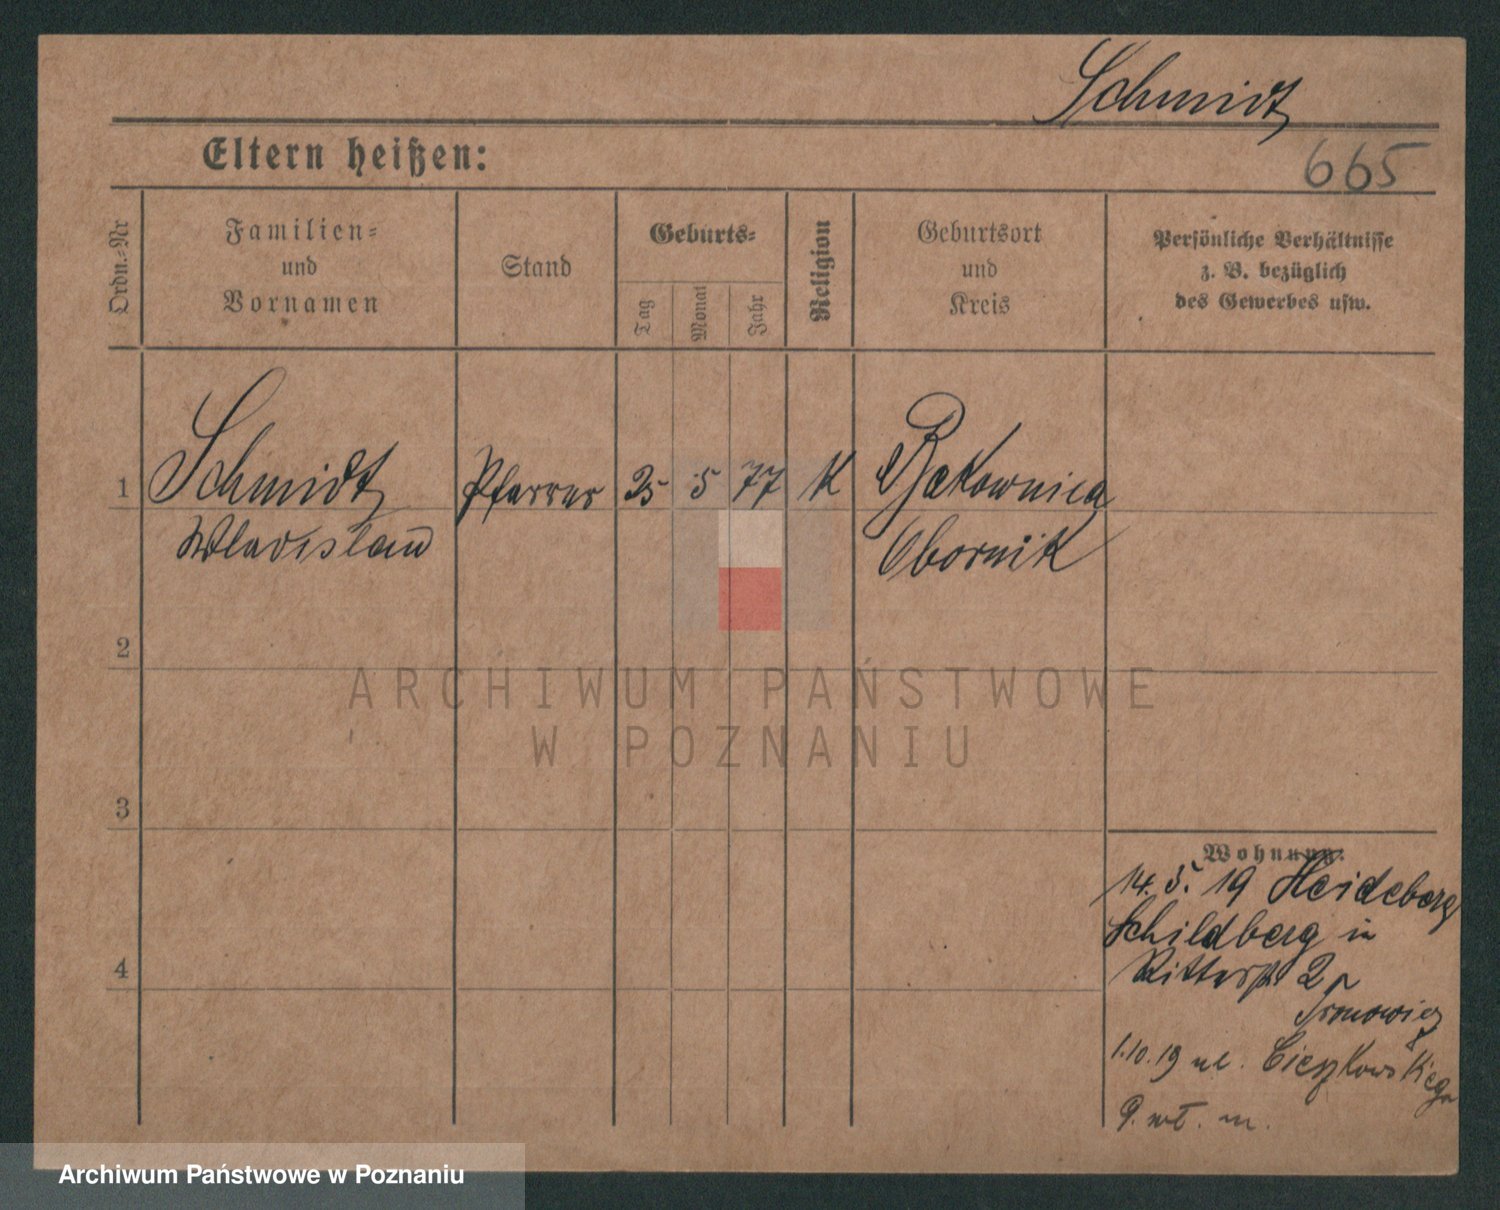 Schmidt
Eltern heißen:
665
Ordn.-Nr
Familien-
und
Vornamen
Stand
Geburts-
Tag
Monat
Jahr
Religion
Geburtsort
und
Kreis
Persönliche Verhältnisse
z. B. bezüglich
des Gewerbes usw.
1 Schmidt Pfarrer 25 5 77 K
Wladislaus Obornik
2
ARCHIWUM PAŃSTWOWE
W POZNANIU
3
Wohnung:
14. 5. 19 Heideberg
Schildberg in
Ritterstr 2
4
1.10.19 ul. Cieszkowskiego
9. m.
Archiwum Państwowe w Poznaniu